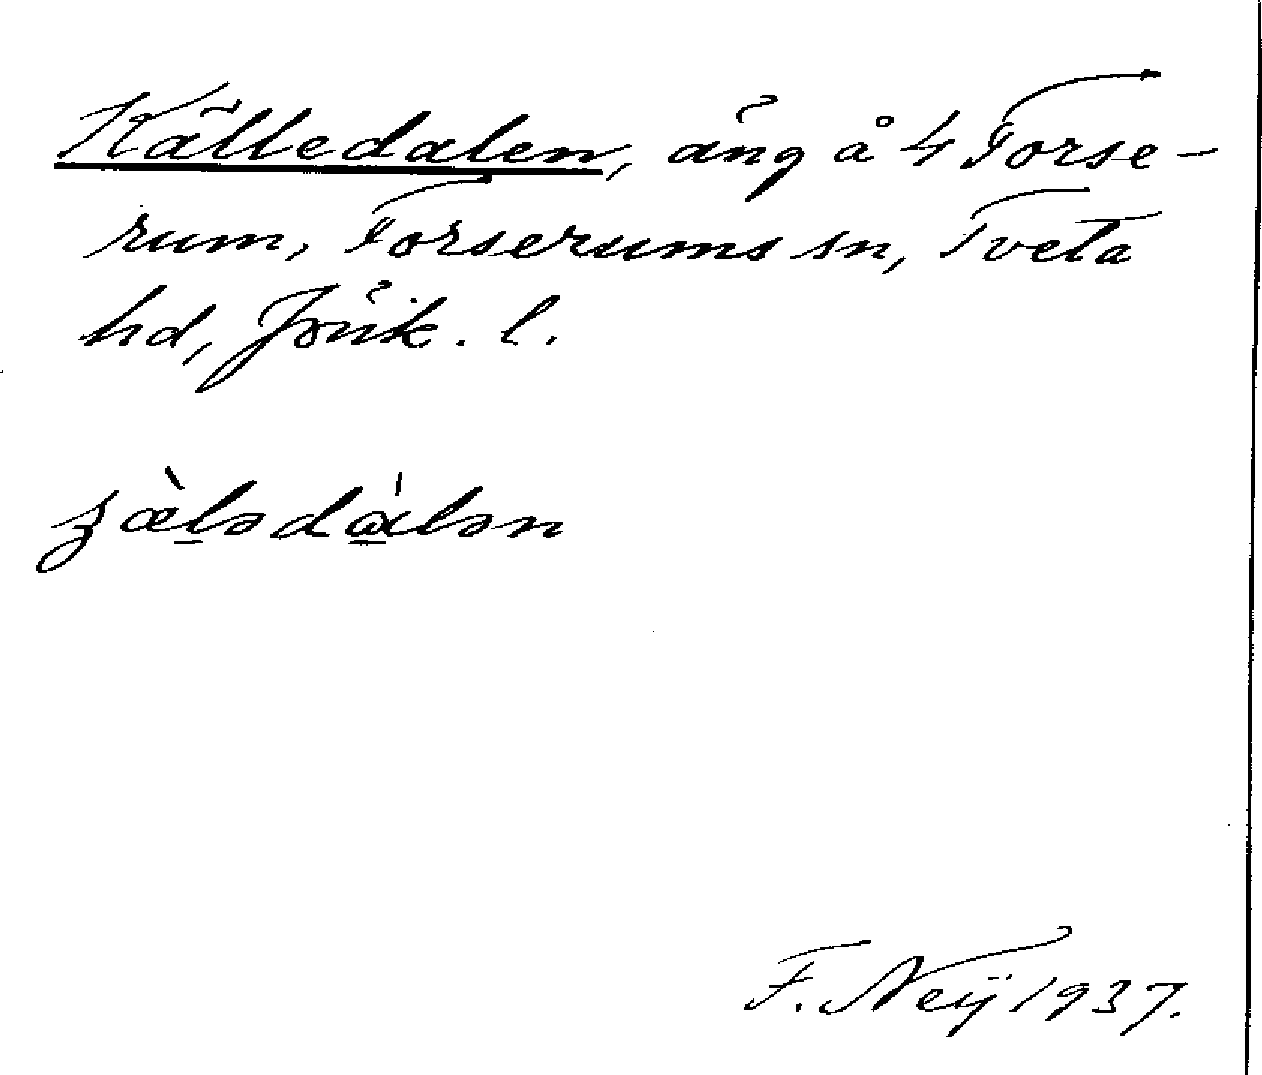 Källedalen, äng å 4 Forse-
rum, Forserums sn, Tveta
hd, Jönk. l.
ʒæ̀lədɑ̀lən
F. Neÿ 1937.